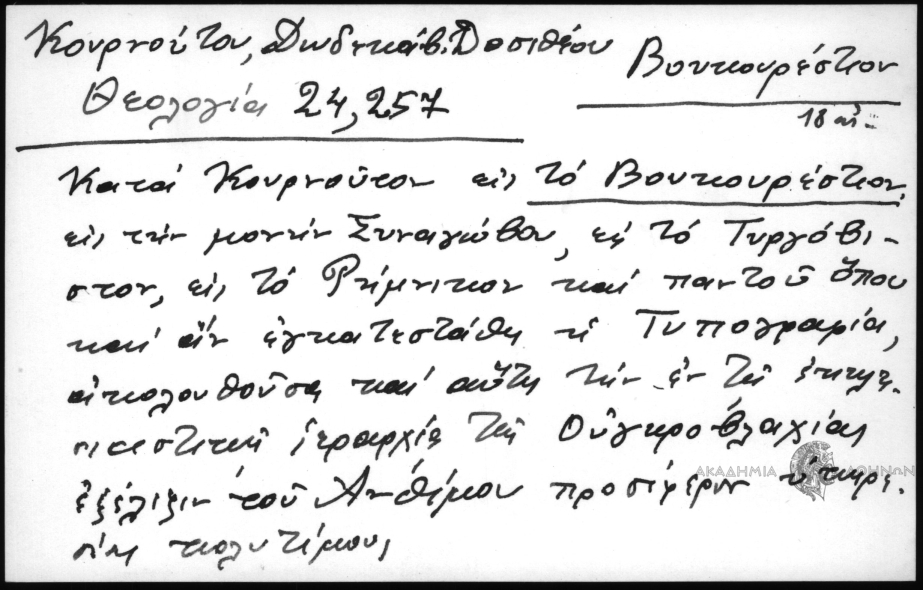 Κουρνούτου, Δωδεκάβ. Δοσιθέου
Βουκουρέστιον
Θεολογία 24, 257
18 αἰ.
Κατά Κουρνοῦτον εἰς τό Βουκουρέστιον,
εἰς τήν μονήν Συναγώβου, εἰς τό Τυργόβι-
στον, εἰς τό Ρήμνικον καί παντοῦ ὅπου
καί ἄν ἐγκατεστάθη ἡ Τυπογραφία,
ἀκολουθοῦσα καί αὕτη τήν ἐν τῇ ἐκκλη-
σιαστικῇ ἱεραρχίᾳ τῆς Οὐγκροβλαχίας
ἐξέλιξιν τοῦ Ἀνθίμου προσέφερεν ὑπηρε-
σίας πολυτίμους
ΑΚΑΔΗΜΙΑ ΑΘΗΝΩΝ